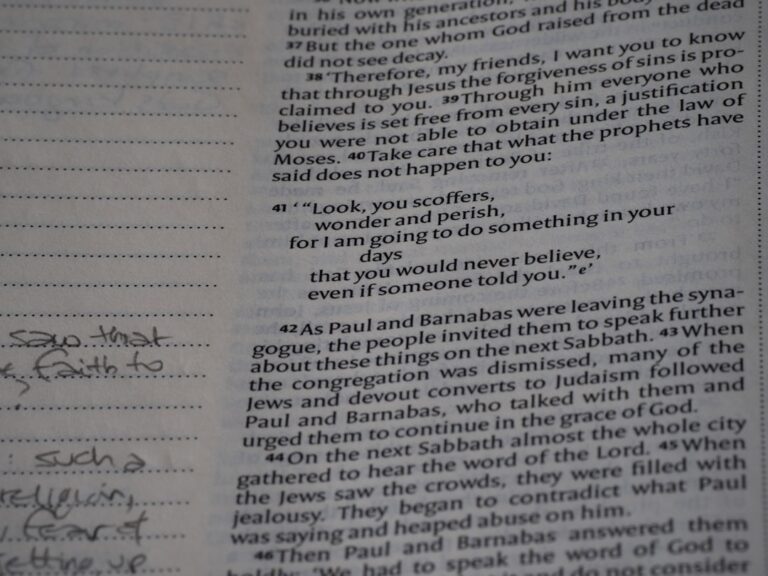 in his own generation,
buried with his ancestors and his body
37 But the one whom God raised from the dead
did not see decay.
38 ‘Therefore, my friends, I want you to know
that through Jesus the forgiveness of sins is pro-
claimed to you. 39 Through him everyone who
believes is set free from every sin, a justification
you were not able to obtain under the law of
Moses. 40 Take care that what the prophets have
said does not happen to you:
41 ‘ “Look, you scoffers,
wonder and perish,
for I am going to do something in your
days
that you would never believe,
even if someone told you.” e’
42 As Paul and Barnabas were leaving the syna-
gogue, the people invited them to speak further
about these things on the next Sabbath. 43 When
the congregation was dismissed, many of the
Jews and devout converts to Judaism followed
Paul and Barnabas, who talked with them and
urged them to continue in the grace of God.
44 On the next Sabbath almost the whole city
gathered to hear the word of the Lord. 45 When
the Jews saw the crowds, they were filled with
jealousy. They began to contradict what Paul
was saying and heaped abuse on him.
46 Then Paul and Barnabas answered them
boldly: ‘We had to speak the word of God to
and do not consider
saw that
faith to
such a
religion,
fear of
setting up